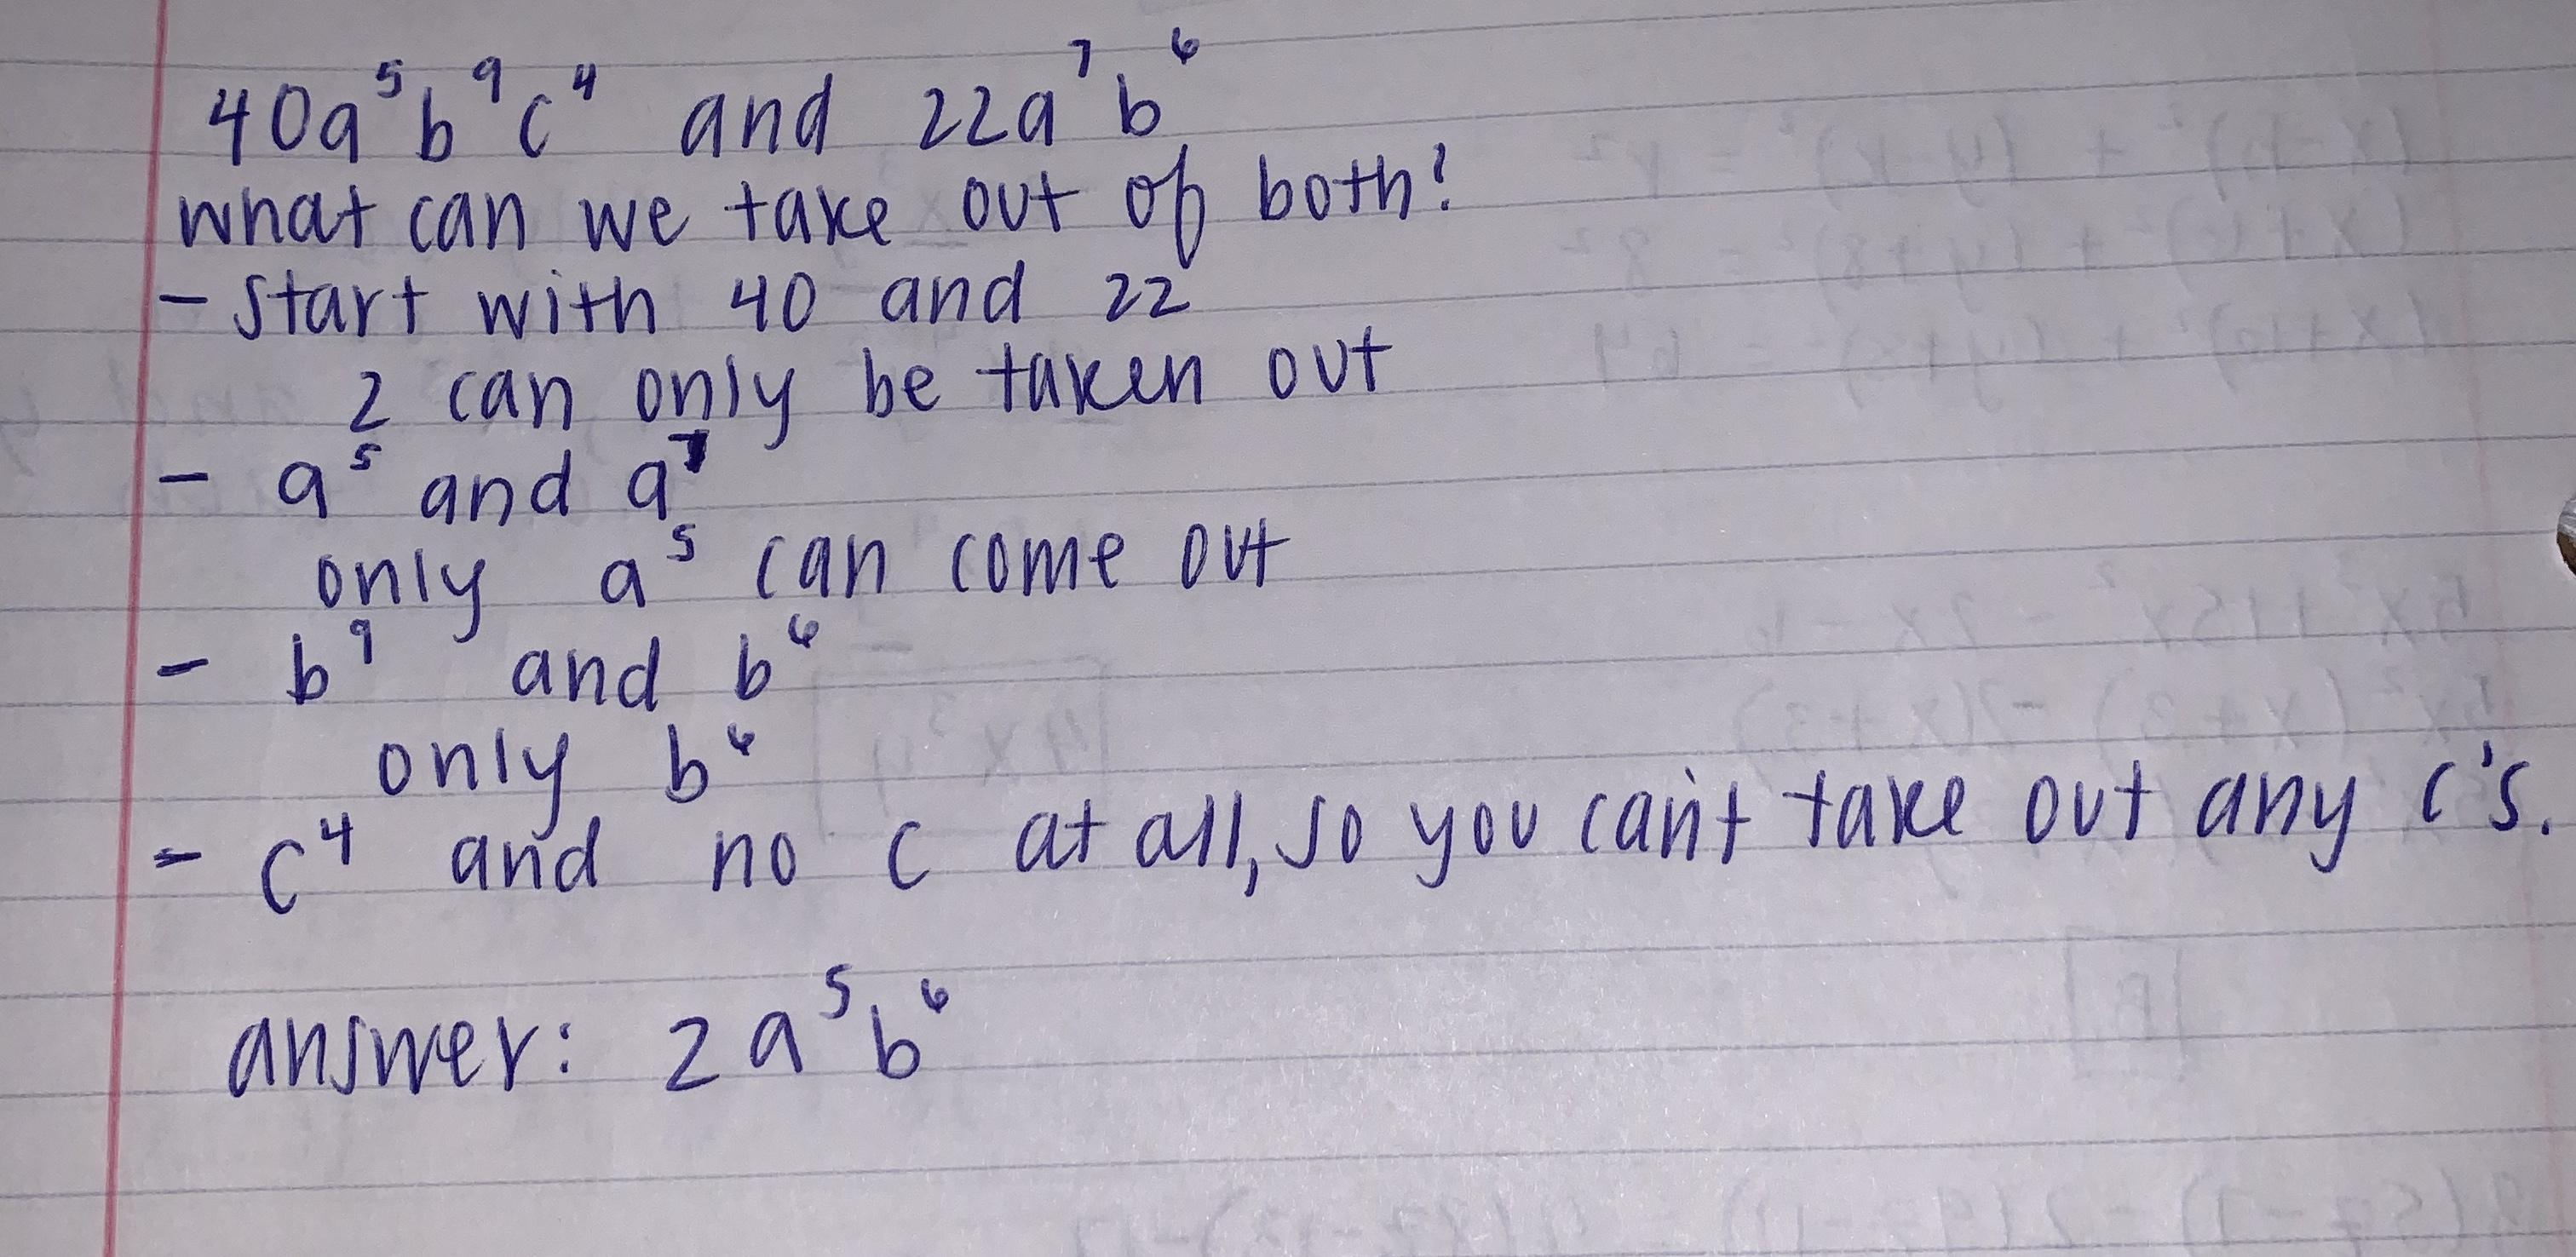 40a⁵b⁹c⁴ and 22a⁷b⁶
what can we take out of both?
- start with 40 and 22
2 can only be taken out
- a⁵ and a⁷
only a⁵ can come out
- b⁹ and b⁶
only b⁶
- c⁴ and no c at all, so you can't take out any c's.
answer: 2a⁵b⁶